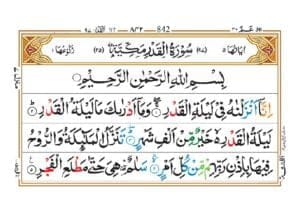 842
سُوْرَةُ الْقَدْرِ مَكِّيَّةٌ
بِسْمِ اللّٰهِ الرَّحْمٰنِ الرَّحِيْمِ
اِنَّاۤ اَنْزَلْنٰهُ فِىْ لَيْلَةِ الْقَدْرِ وَمَاۤ اَدْرٰىكَ مَا لَيْلَةُ الْقَدْرِ
لَيْلَةُ الْقَدْرِ خَيْرٌ مِّنْ اَلْفِ شَهْرٍ تَنَزَّلُ الْمَلٰٓئِكَةُ وَالرُّوْحُ
فِيْهَا بِاِذْنِ رَبِّهِمْ مِّنْ كُلِّ اَمْرٍ سَلٰمٌ هِىَ حَتّٰى مَطْلَعِ الْفَجْرِ